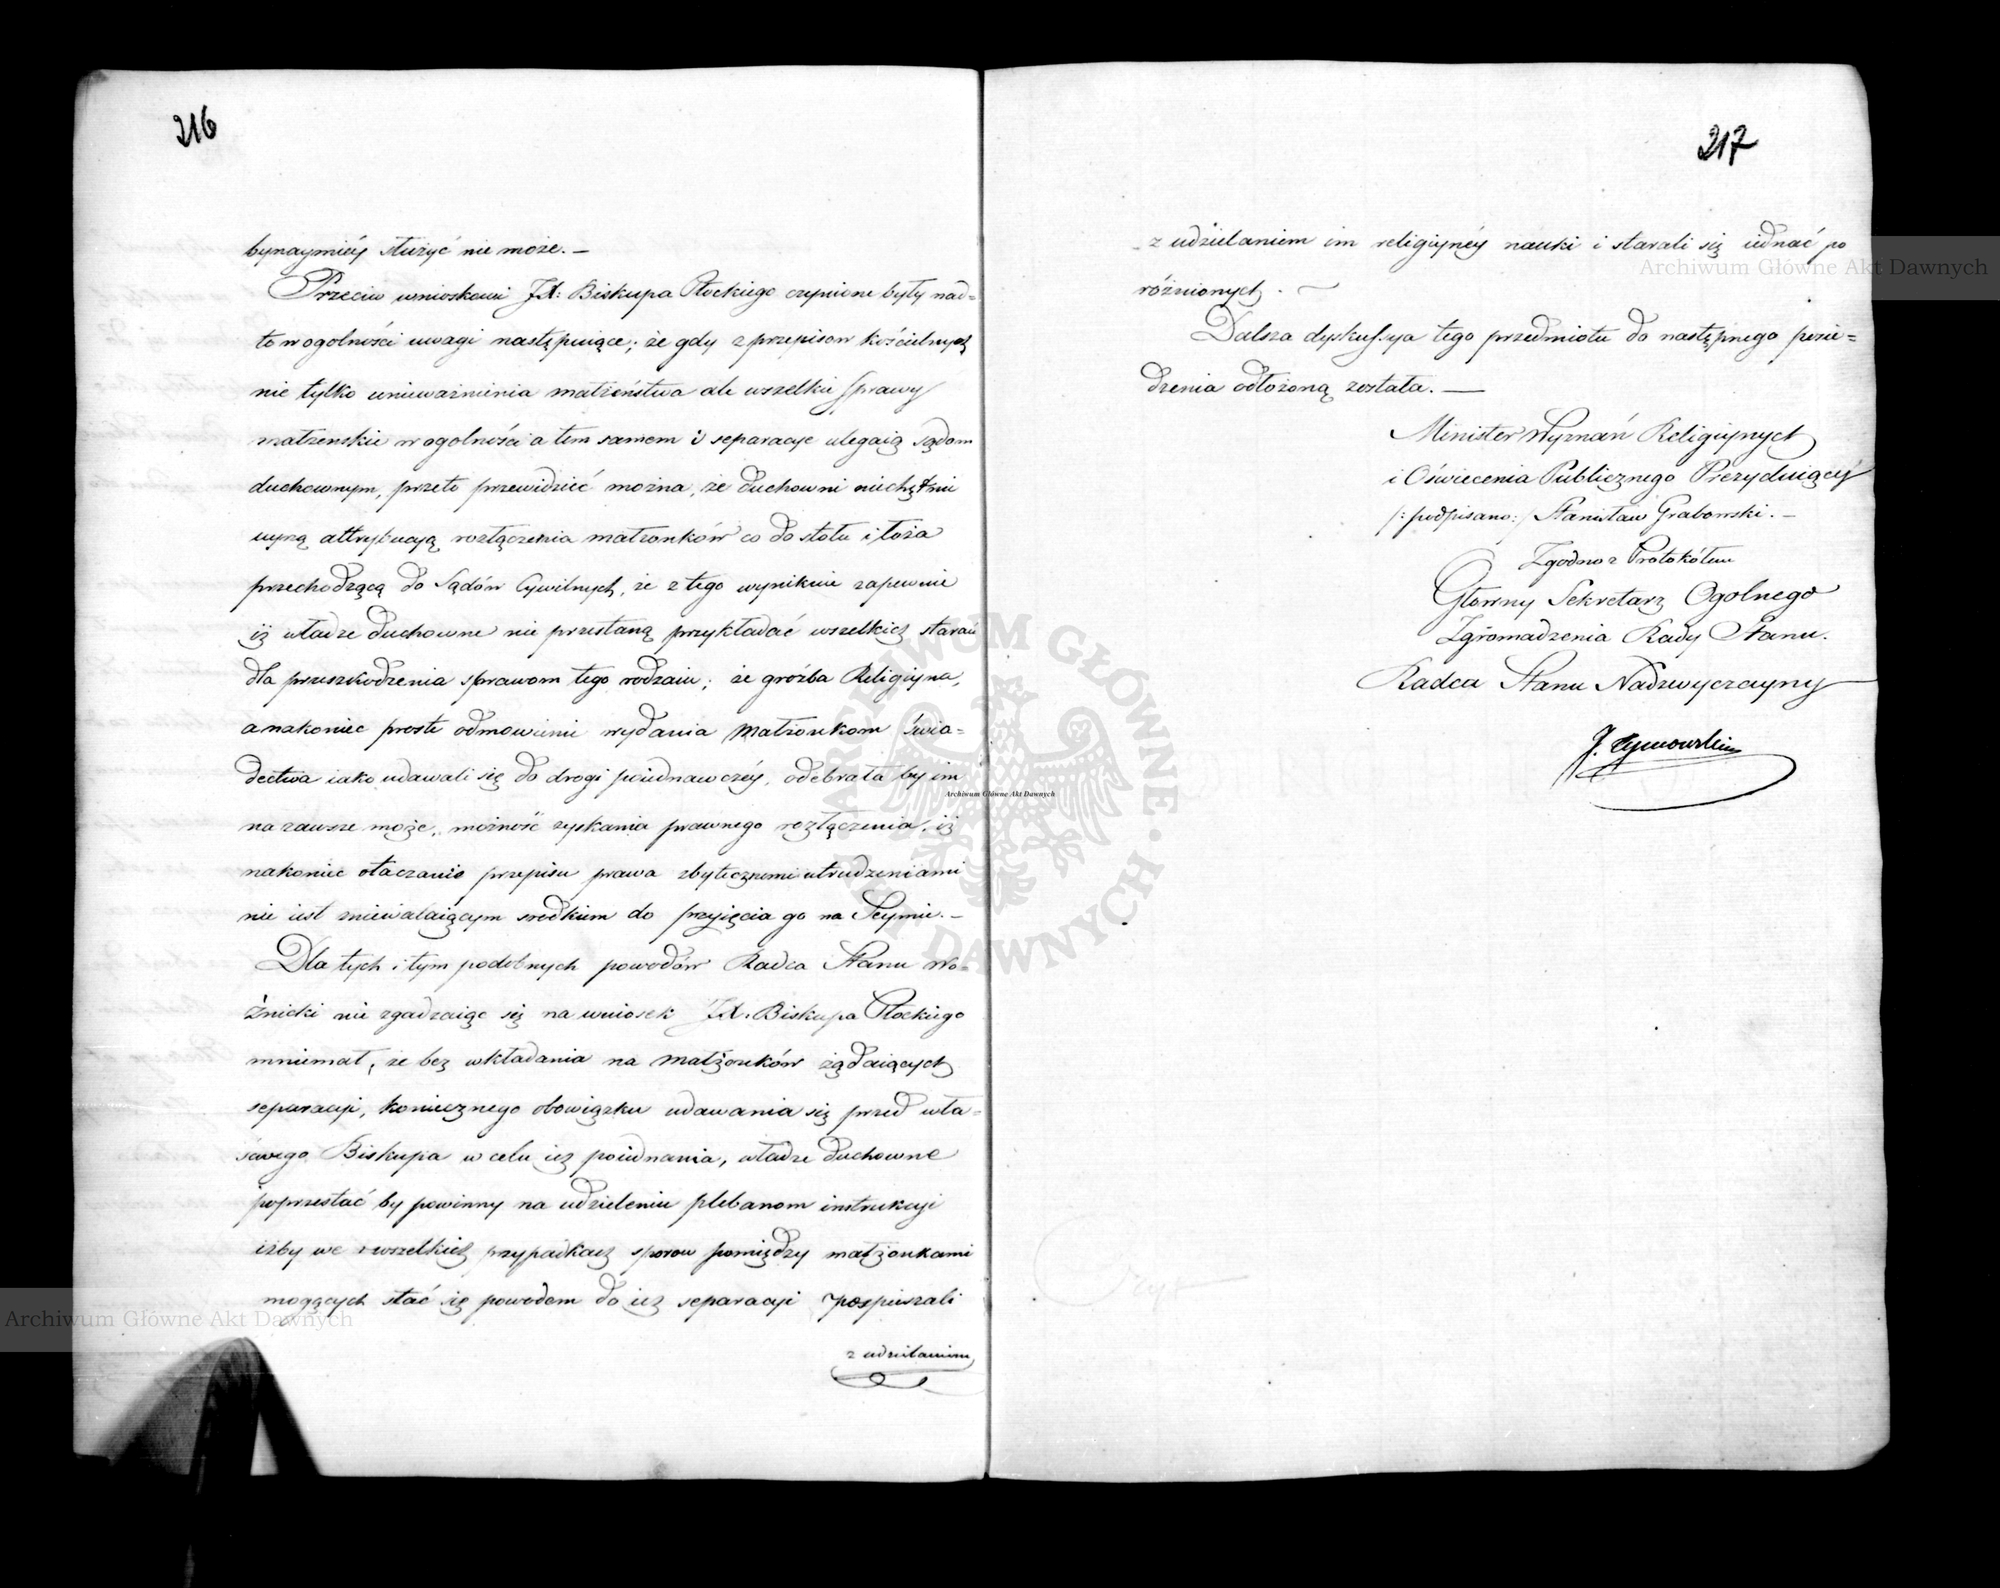 216
bynaymniéy służyć nie może. —
Przeciw wnioskowi JX: Biskupa Płockiego czynione były nad=
to w ogolności uwagi następuiące; że gdy z przepisow kościelnych
nie tylko unieważnienia małżeństwa ale wszelkie sprawy
małżenskie w ogolności a tem samem i separacye ulegaią sądom
duchownym, przeto przewidzieć można, że duchowni niechętnie
uyrzą attrybucyą rozłączenia małżonków co do stołu i łoża
przechodzącą do Sądów Cywilnych, że z tego wyniknie zapewnie
iż władze duchowne nie przestaną przykładać wszelkich starań
dla przeszkodzenia sprawom tego rodzaiu; że groźba Religiyna,
a nakoniec proste odmowienie wydania Małżonkom świa=
dectwa iako udawali się do drogi poiednawczéy, odebrała by im
na zawsze może, możność zyskania prawnego rozłączenia, iż
nakoniec otaczanie przepisu prawa zbytecznemi utrudzeniami
nie iest zniewalaiącym srodkiem do przyięcia go na Seymie. —
Dla tych i tym podobnych powodów Radca Stanu Wo=
źnicki nie zgadzaiąc się na wniosek JX: Biskupa Płockiego
mniemał, że bez wkładania na Małżonków żądaiących
separacyi, koniecznego obowiązku udawania się przed wła=
snego Biskupa w celu ich poiednania, władze duchowne
poprzestać by powinny na udzieleniu plebanom instrukcyi
iżby we wszelkich przypadkach sporow pomiędzy małżonkami
mogących stać się powodem do ich separacyi pospieszali
z udzielaniem
217
z udzielaniem im religiynéy nauki i starali się iednać po
różnionych. —
Dalsza dyskussya tego przedmiotu do następnego posie=
dzenia odłożoną została. —
Minister Wyznań Religiynych
i Oświecenia Publicznego Prezyduiący
/: podpisano :/ Stanisław Grabowski. —
Zgodno z Protokółem
Głowny Sekretarz Ogolnego
Zgromadzenia Rady Stanu.
Radca Stanu Nadzwyczayny
J. Tymowski
Archiwum Główne Akt Dawnych
Archiwum Główne Akt Dawnych
Archiwum Główne Akt Dawnych
ARCHIWUM GŁÓWNE AKT DAWNYCH